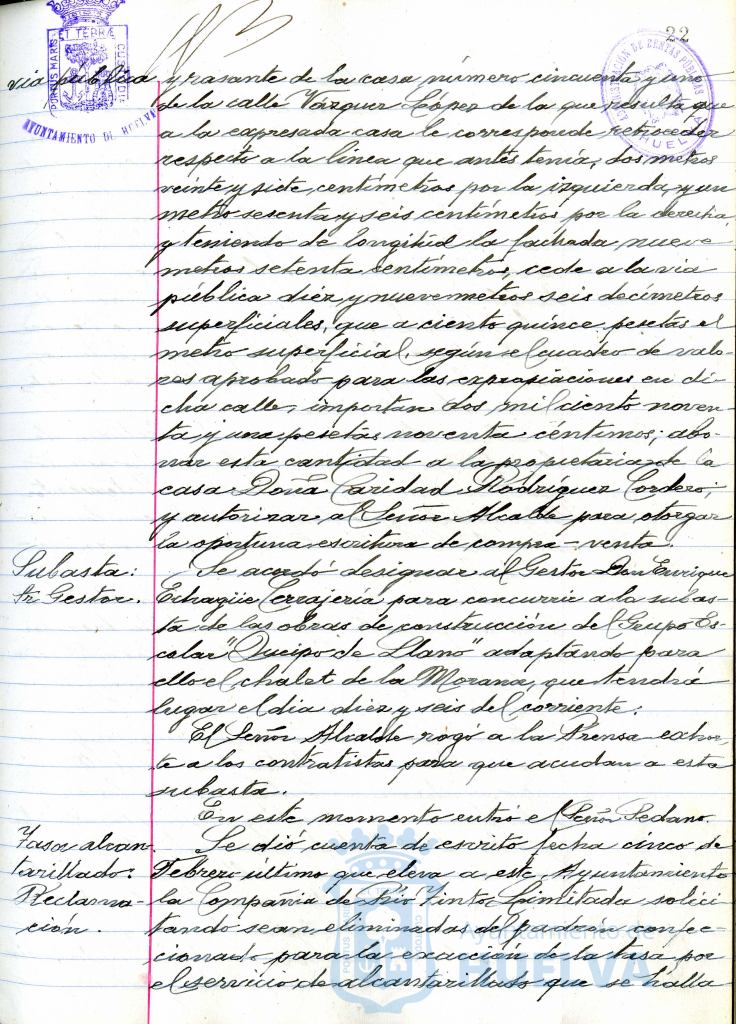 22
PORTUS MARIS ET TERRÆ CUSTODIA
AYUNTAMIENTO DE HUELVA
ADMINISTRACIÓN DE RENTAS PÚBLICAS
HUELVA
via publica y rasante de la casa número cincuenta y uno
de la calle Vázquez López de la que resulta que
a la expresada casa le corresponde retroceder
respecto a la linea que antes tenía, dos metros
veinte y siete centímetros por la izquierda y un
metro sesenta y seis centímetros por la derecha
y teniendo de longitud la fachada nueve
metros setenta centímetros, cede a la via
pública diez y nueve metros seis decímetros
superficiales, que a ciento quince pesetas el
metro superficial, según el cuadro de valo-
res aprobado para las expropiaciones en di-
cha calle, importan dos mil ciento noven-
ta y una pesetas noventa céntimos; abo-
nar esta cantidad a la propietaria de la
casa Doña Caridad Rodríguez Cordero;
y autorizar al Señor Alcalde para otorgar
la oportuna escritura de compra-venta.
Subasta:
Sr Gestor.
Se acordó designar al Gestor Don Enrique
Echagüe Cerrajería para concurrir a la subas-
ta de las obras de construcción del Grupo Es-
colar "Queipo de Llano" adaptando para
ello el chalet de la Morana, que tendrá
lugar el dia diez y seis del corriente.
El Señor Alcalde rogó a la Prensa exhor-
te a los contratistas para que acudan a esta
subasta.
En este momento entró el Señor Sedano.
Tasa alcan-
tarillado:
Reclama-
ción.
Se dió cuenta de escrito fecha cinco de
Febrero último que eleva a este Ayuntamiento
la Compañia de Rio Tinto Limitada solici-
tando sean eliminadas del padrón confec-
cionado para la exacción de la tasa por
el servicio de alcantarillado que se halla
Ayuntamiento de
HUELVA